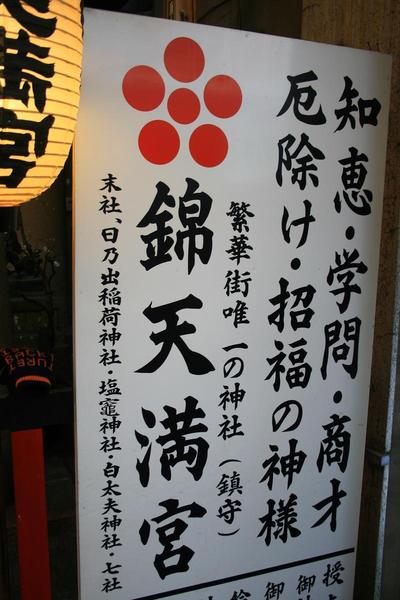 知恵・学問・商才
厄除け・招福の神様
繁華街唯一の神社（鎮守）
錦天満宮
末社、日乃出稲荷神社・塩竈神社・白太夫神社・七社
授
御
御
満宮